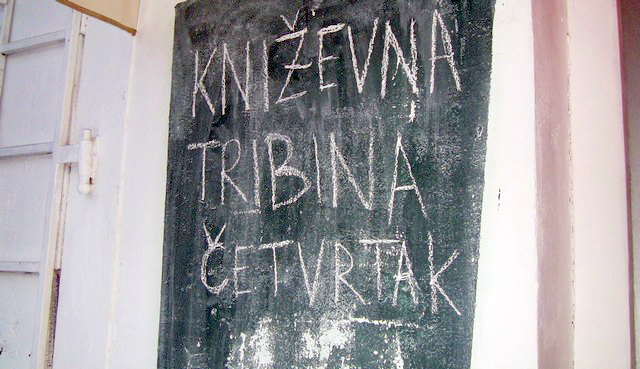 KNIŽEVŅA
TRIBINA
ČETVRTAK